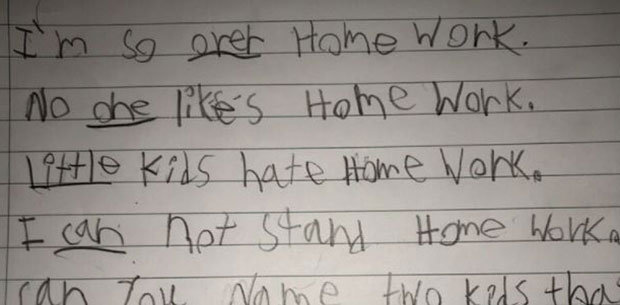 I'm so over Home Work.
No one like's Home Work.
Little kids hate Home Work.
I can not stand Home Work.
can you Name two kids tha